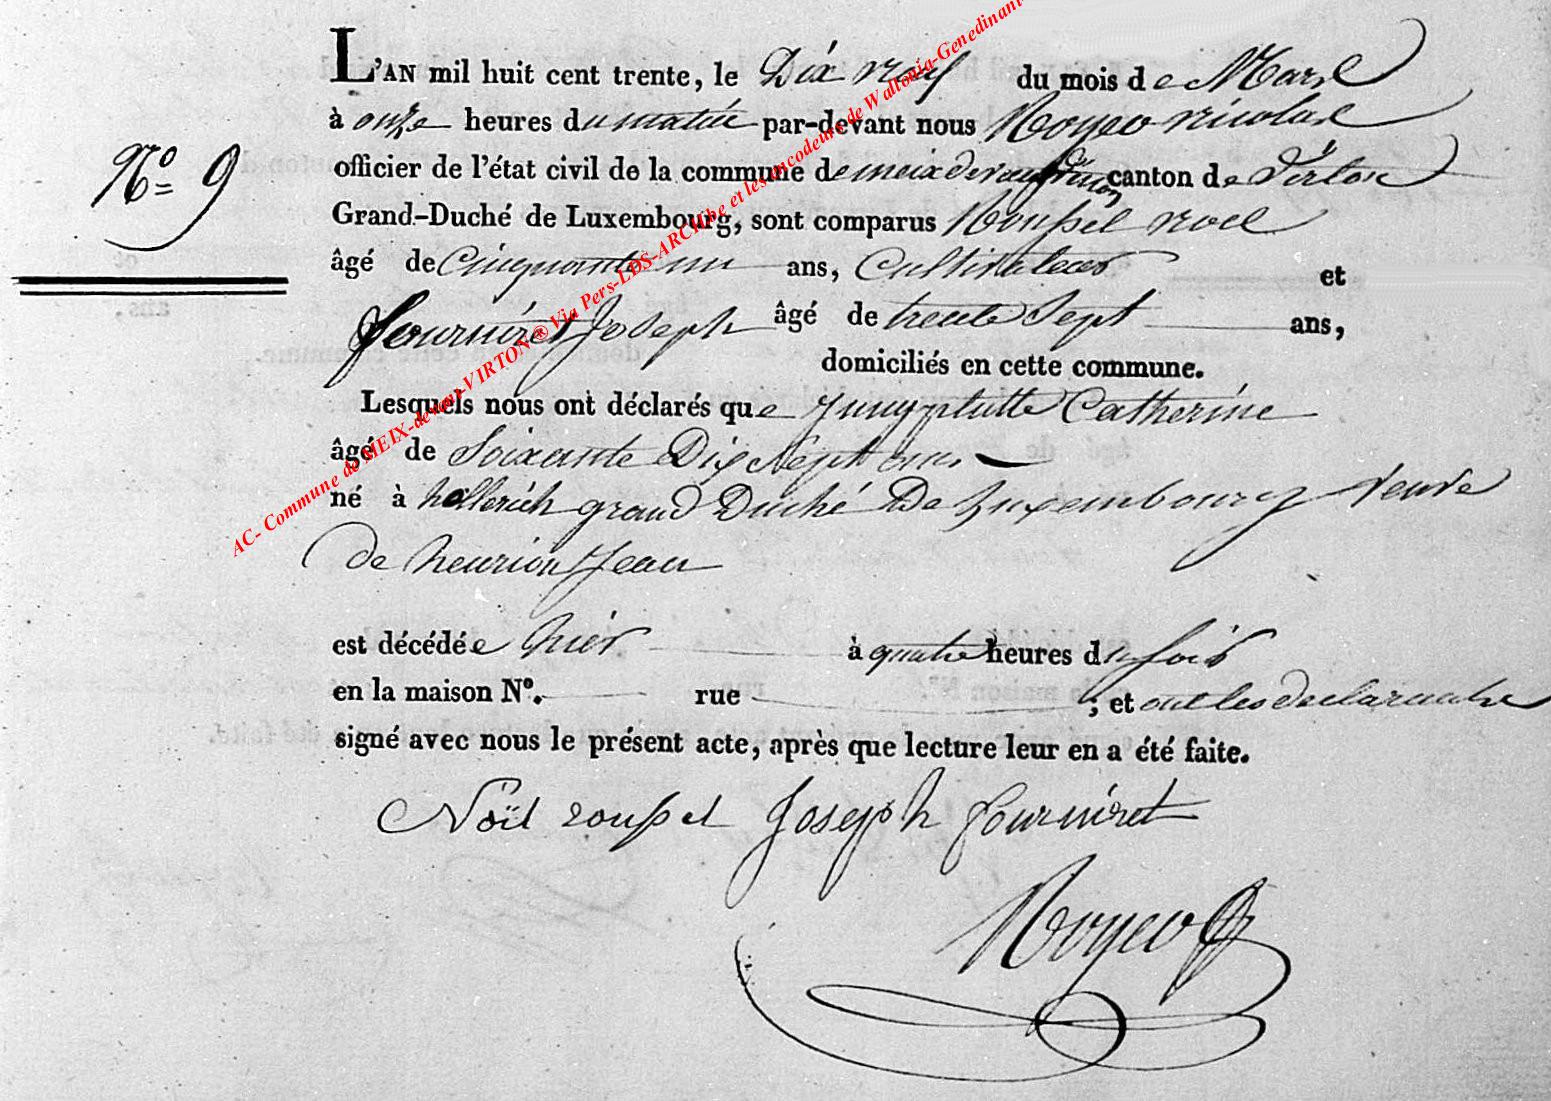 L'AN mil huit cent trente, le Dix neuf du mois de Mars
à onze heures du matin par-devant nous Royer nicolas
N° 9
officier de l'état civil de la commune de meix devant Virton canton de Virton
Grand-Duché de Luxembourg, sont comparus Roussel noel
âgé de Cinquante un ans, Cultivateur et
fourniret Joseph âgé de trente Sept ans,
domiciliés en cette commune.
Lesquels nous ont déclarés que Catherine
âgé de Soixante Dix Sept ans
né à hollerich grand Duché De Luxembourg veuve
de henrion Jean
est décédée hier à quatre heures du soir
en la maison N°. rue ; et ont les declarants
signé avec nous le présent acte, après que lecture leur en a été faite.
Noël roussel Joseph fourniret
Royer
AC- Commune de MEIX-devant-VIRTON ® Via Pers-LDS-ARCHbe et les encodeurs de Wallonia-Genedinant